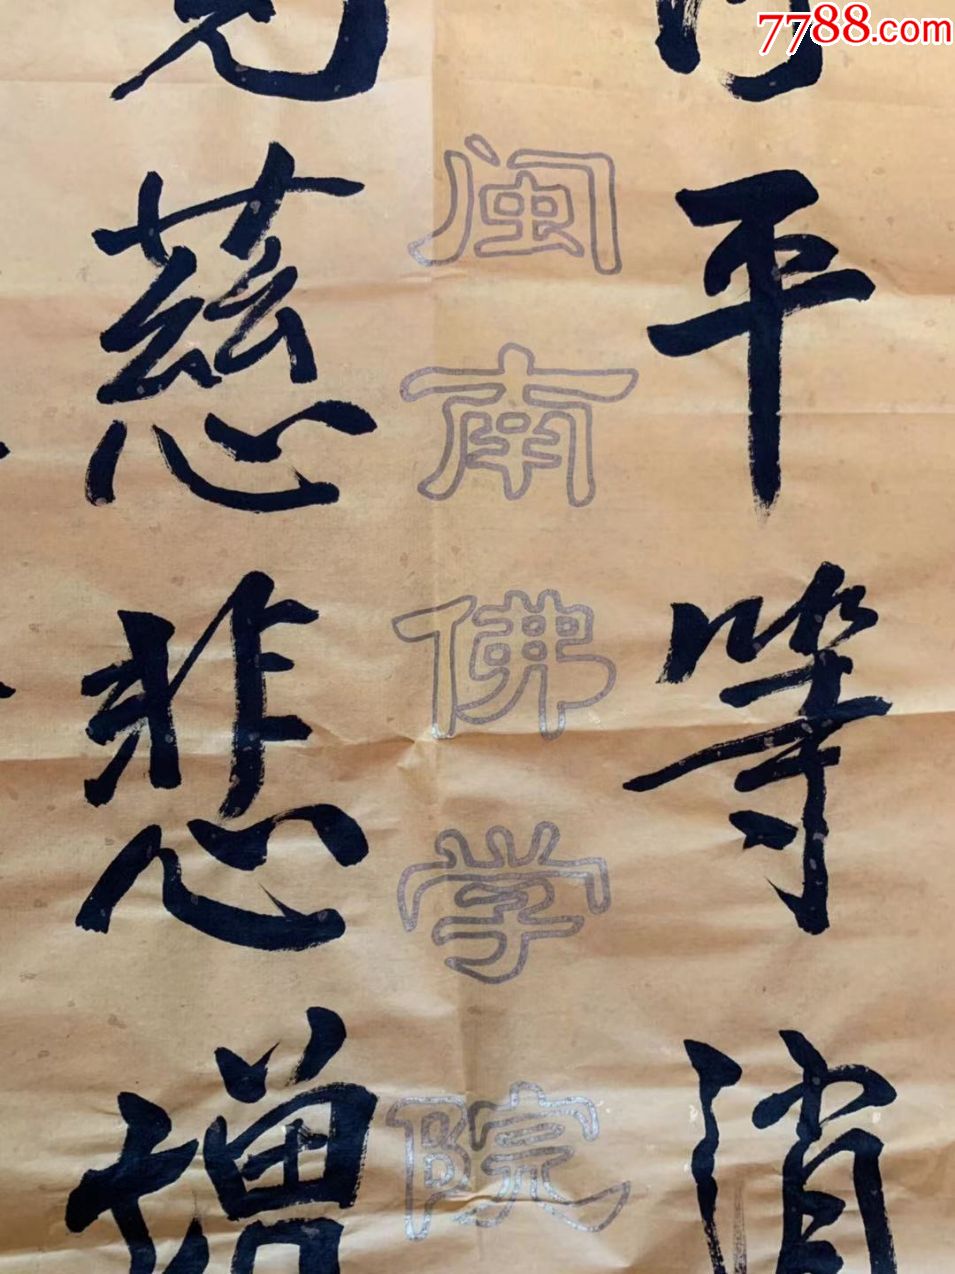 7788.com
平等消
闽南佛学院
慈悲增